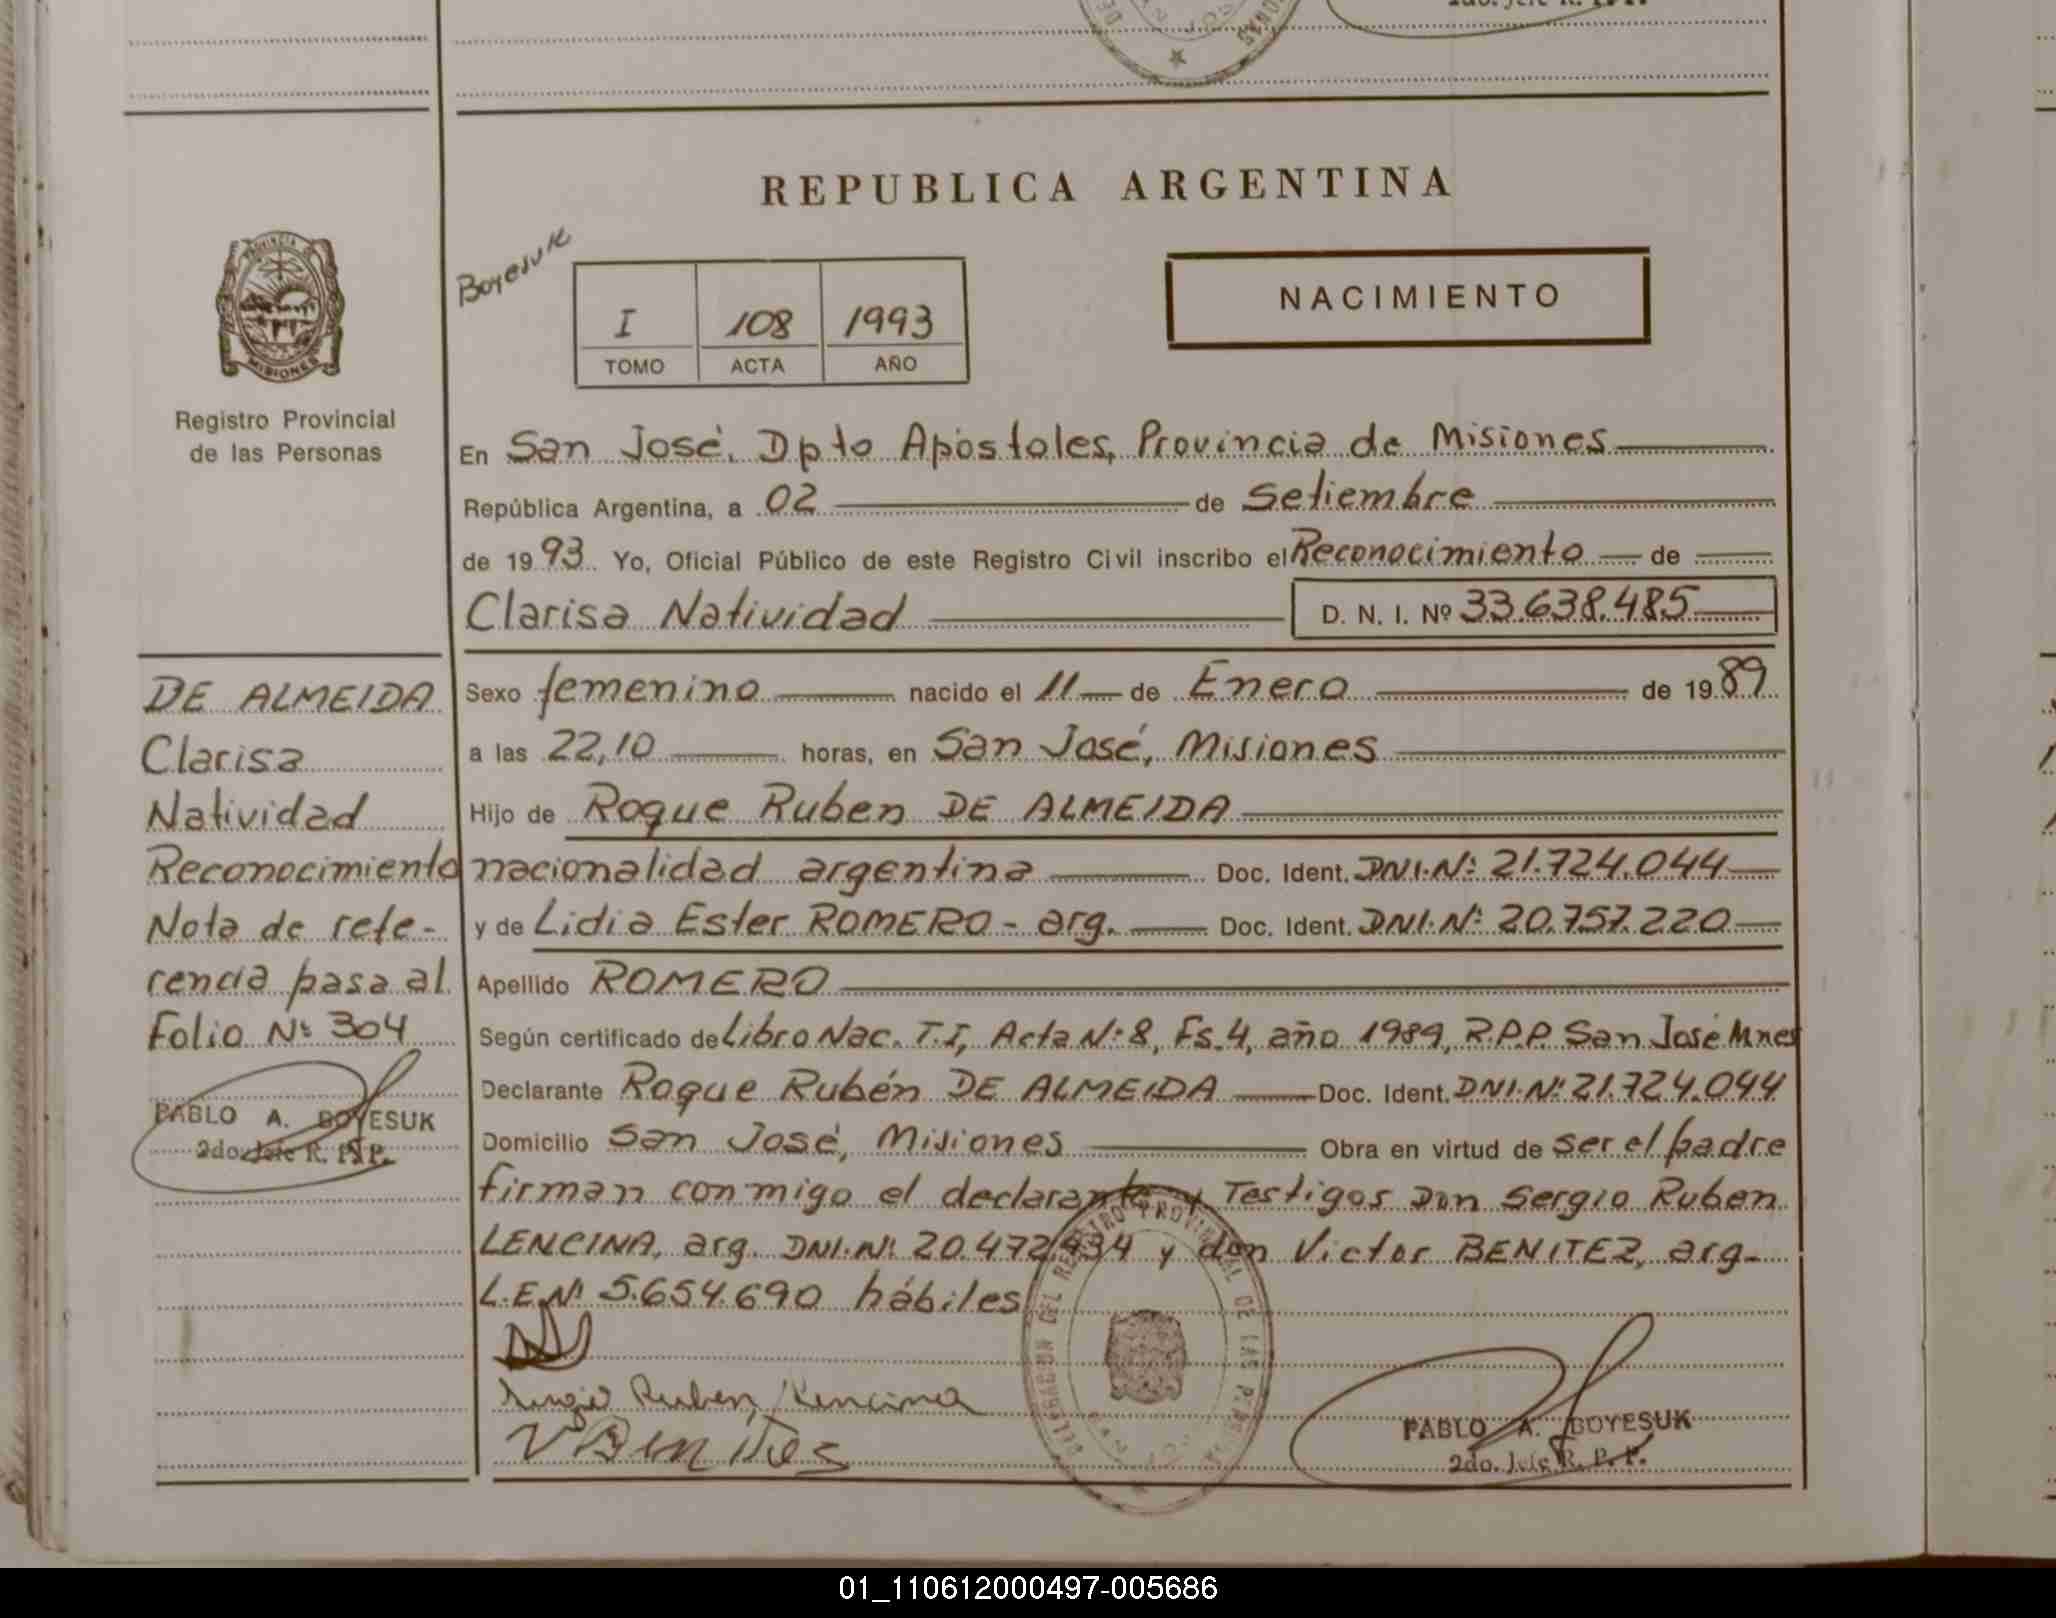 REPUBLICA ARGENTINA
Boyesuk
I 108 1993
TOMO ACTA AÑO
NACIMIENTO
PROVINCIA
MISIONES
Registro Provincial
de las Personas
En San José, Dpto Apóstoles, Provincia de Misiones
República Argentina, a 02 de Setiembre
de 1993 Yo, Oficial Público de este Registro Civil inscribo el Reconocimiento de
Clarisa Natividad D. N. I. Nº 33.638.485
Sexo femenino nacido el 11 de Enero de 1989
a las 22,10 horas, en San José, Misiones
Hijo de Roque Ruben DE ALMEIDA
nacionalidad argentina Doc. Ident. DNI.Nº 21.724.044
y de Lidia Ester ROMERO - arg. Doc. Ident. DNI.Nº 20.757.220
Apellido ROMERO
Según certificado de Libro Nac. T.I, Acta Nº 8, Fs.4, año 1989, R.P.P. San José Mnes
Declarante Roque Rubén DE ALMEIDA Doc. Ident. DNI.Nº 21.724.044
Domicilio San José, Misiones Obra en virtud de ser el padre
firman conmigo el declarante y Testigos Don Sergio Ruben
LENCINA, arg. DNI.Nº 20.472.434 y don Victor BENITEZ, arg-
L.E.Nº 5.654.690 hábiles
Sergio Ruben Lencina
V Benites
DELEGACION DEL REGISTRO PROVINCIAL DE LAS PERSONAS
PABLO A. BOYESUK
2do. Jefe R. P. P.
DE ALMEIDA
Clarisa
Natividad
Reconocimiento
Nota de refe-
rencia pasa al
Folio Nº 304
PABLO A. BOYESUK
2do. Jefe R. P. P.
01_110612000497-005686